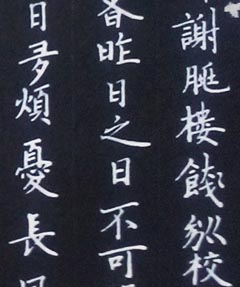 謝朓樓餞別校
者昨日之日不可
日多煩憂長